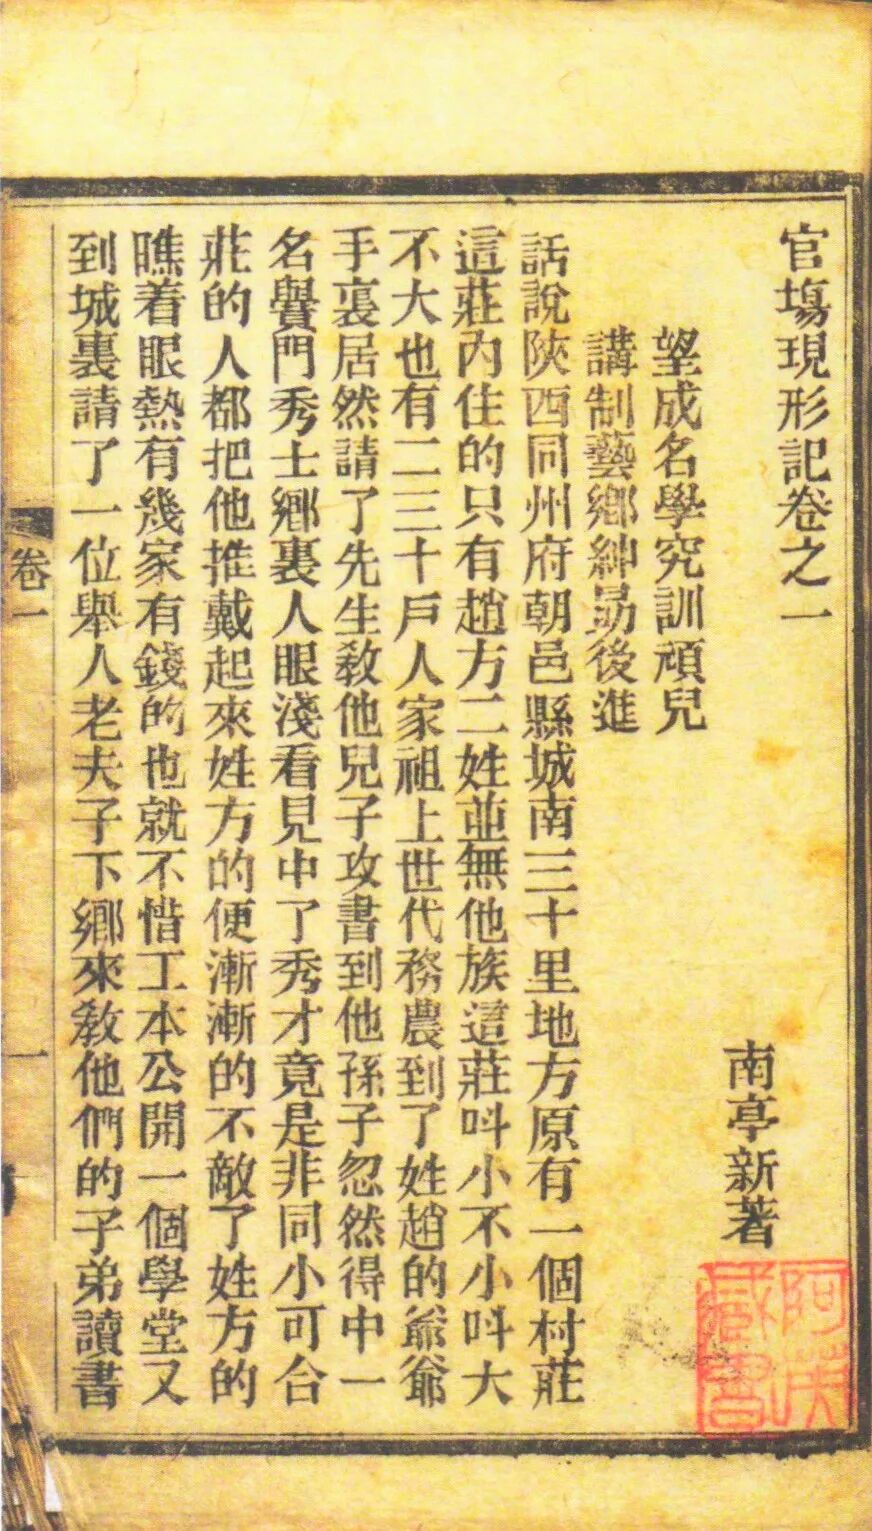 官塲現形記卷之一
南亭新著
望成名學究訓頑兒
講制藝鄉紳勗後進
話說陝西同州府朝邑縣城南三十里地方原有一個村莊
這莊內住的只有趙方二姓並無他族這莊呌小不小呌大
不大也有二三十戶人家祖上世代務農到了姓趙的爺爺
手裏居然請了先生敎他兒子攻書到他孫子忽然得中一
名黌門秀士鄉裏人眼淺看見中了秀才竟是非同小可合
莊的人都把他推戴起來姓方的便漸漸的不敵了姓方的
瞧着眼熱有幾家有錢的也就不惜工本公開一個學堂又
到城裏請了一位舉人老夫子下鄉來敎他們的子弟讀書
卷一
一
藏書